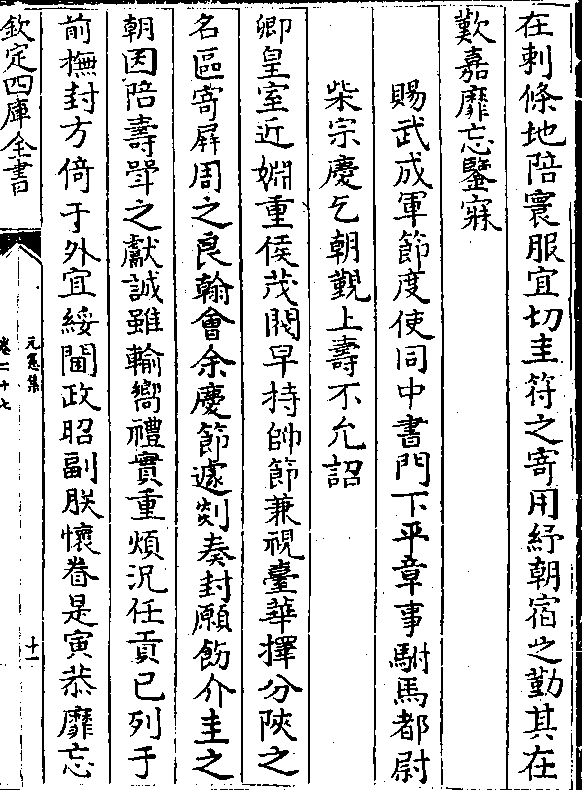 在剌條地陪寰服宜切圭符之寄用紓朝宿之勤其在
歎嘉靡忘鑒寐
賜武成軍節度使同中書門下平章事駙馬都尉
柴宗慶乞朝覲上壽不允詔
卿皇室近婣重侯茂閥早持帥節兼視臺華擇分陜之
名區寄屏周之良翰會余慶節遽剡奏封願飭介圭之
朝因陪壽斝之獻誠雖輸嚮禮實重煩況任貢已列于
前撫封方倚于外宜綏閫政昭副朕懷眷是寅恭靡忘
欽定四庫全書
元憲集
卷二十七
十一